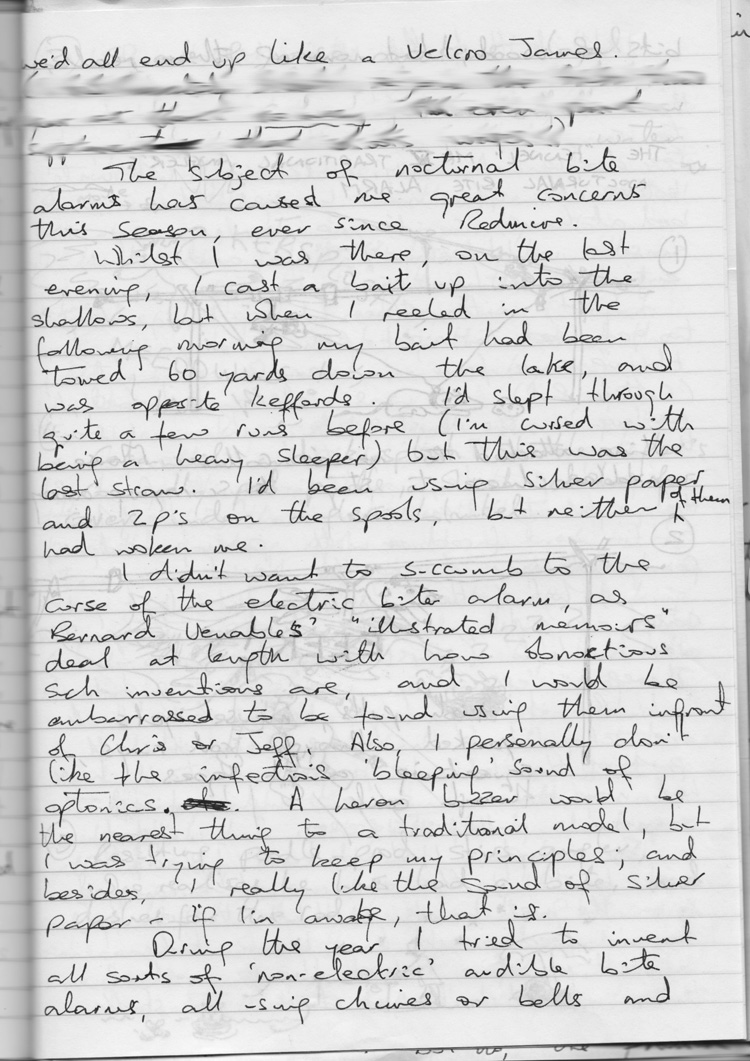 we'd all end up like a Velcro James.
" The subject of nocturnal bite
alarms has caused me great concerns
this season, ever since Redmire.
Whilst I was there, on the last
evening, I cast a bait up into the
shallows, but when I reeled in the
following morning my bait had been
towed 60 yards down the lake, and
was opposite Keffords. I'd slept through
quite a few runs before (I'm cursed with
being a heavy sleeper) but this was the
last straw. I'd been using silver paper
and 2p's on the spools, but neither of them
had woken me.
I didn't want to succumb to the
curse of the electric bite alarm, as
Bernard Venables' "illustrated memoirs"
deal at length with how obnoxious
such inventions are, and I would be
embarrassed to be found using them infront
of Chris or Jeff. Also, I personally don't
like the infectious 'bleeping' sound of
optonics. A heron buzzer would be
the nearest thing to a traditional model, but
I was trying to keep my principles; and
besides, I really like the sound of silver
paper - if I'm awake, that is.
During the year I tried to invent
all sorts of 'non-electric' audible bite
alarms, all using chimes or bells and